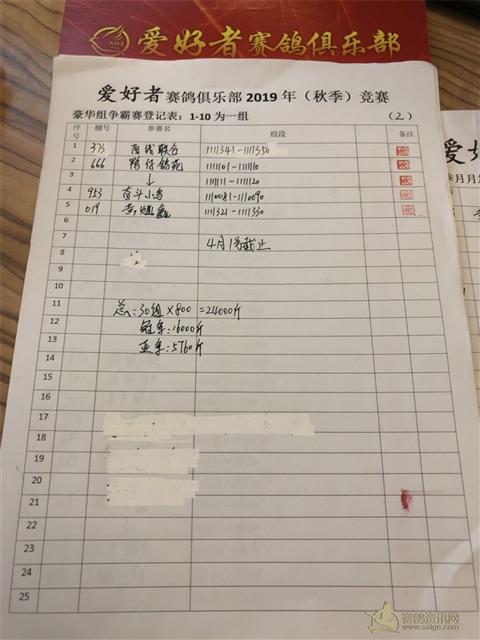 爱好者赛鸽俱乐部
爱好者赛鸽俱乐部2019年（秋季）竞赛
豪华组争霸赛登记表：1-10为一组 （2.）
序号 棚号 参赛名 组段 备注
1 373 联合 1111341-1111350
2 666 1111101-1111110
3 ↓ 1111111-1111120
4 953 奋斗小鸟 1110081-1110090
5 019 1111321-1111330
6
7 4月1号截止
8
9
10
11 总：30组×800=24000斤
12 冠军：16000斤
13 亚军：5760斤
14
15
16
17
18
19
20
21
22
23
24
25
爱好
季月月
赛鸽资讯网
www.saige.com